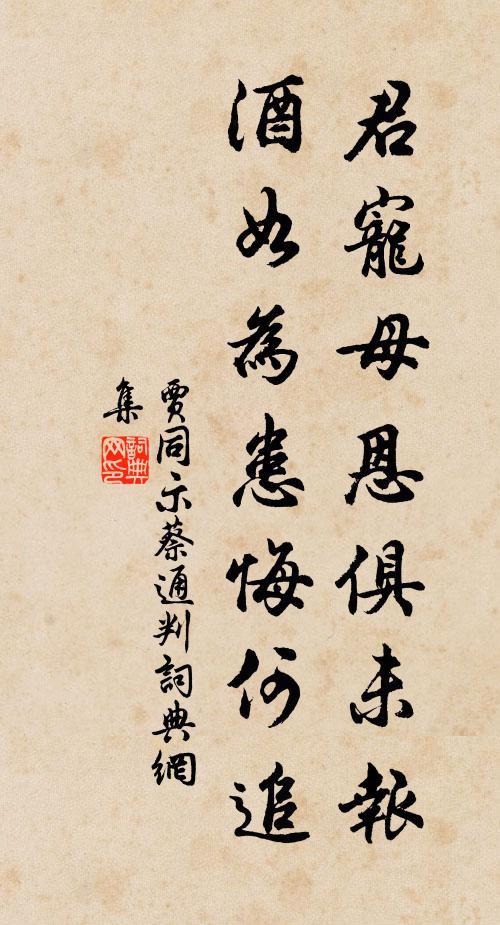 君寵母恩俱未報
酒如為患悔何追
賈同示蔡通判詞典網
集
詞典
网印